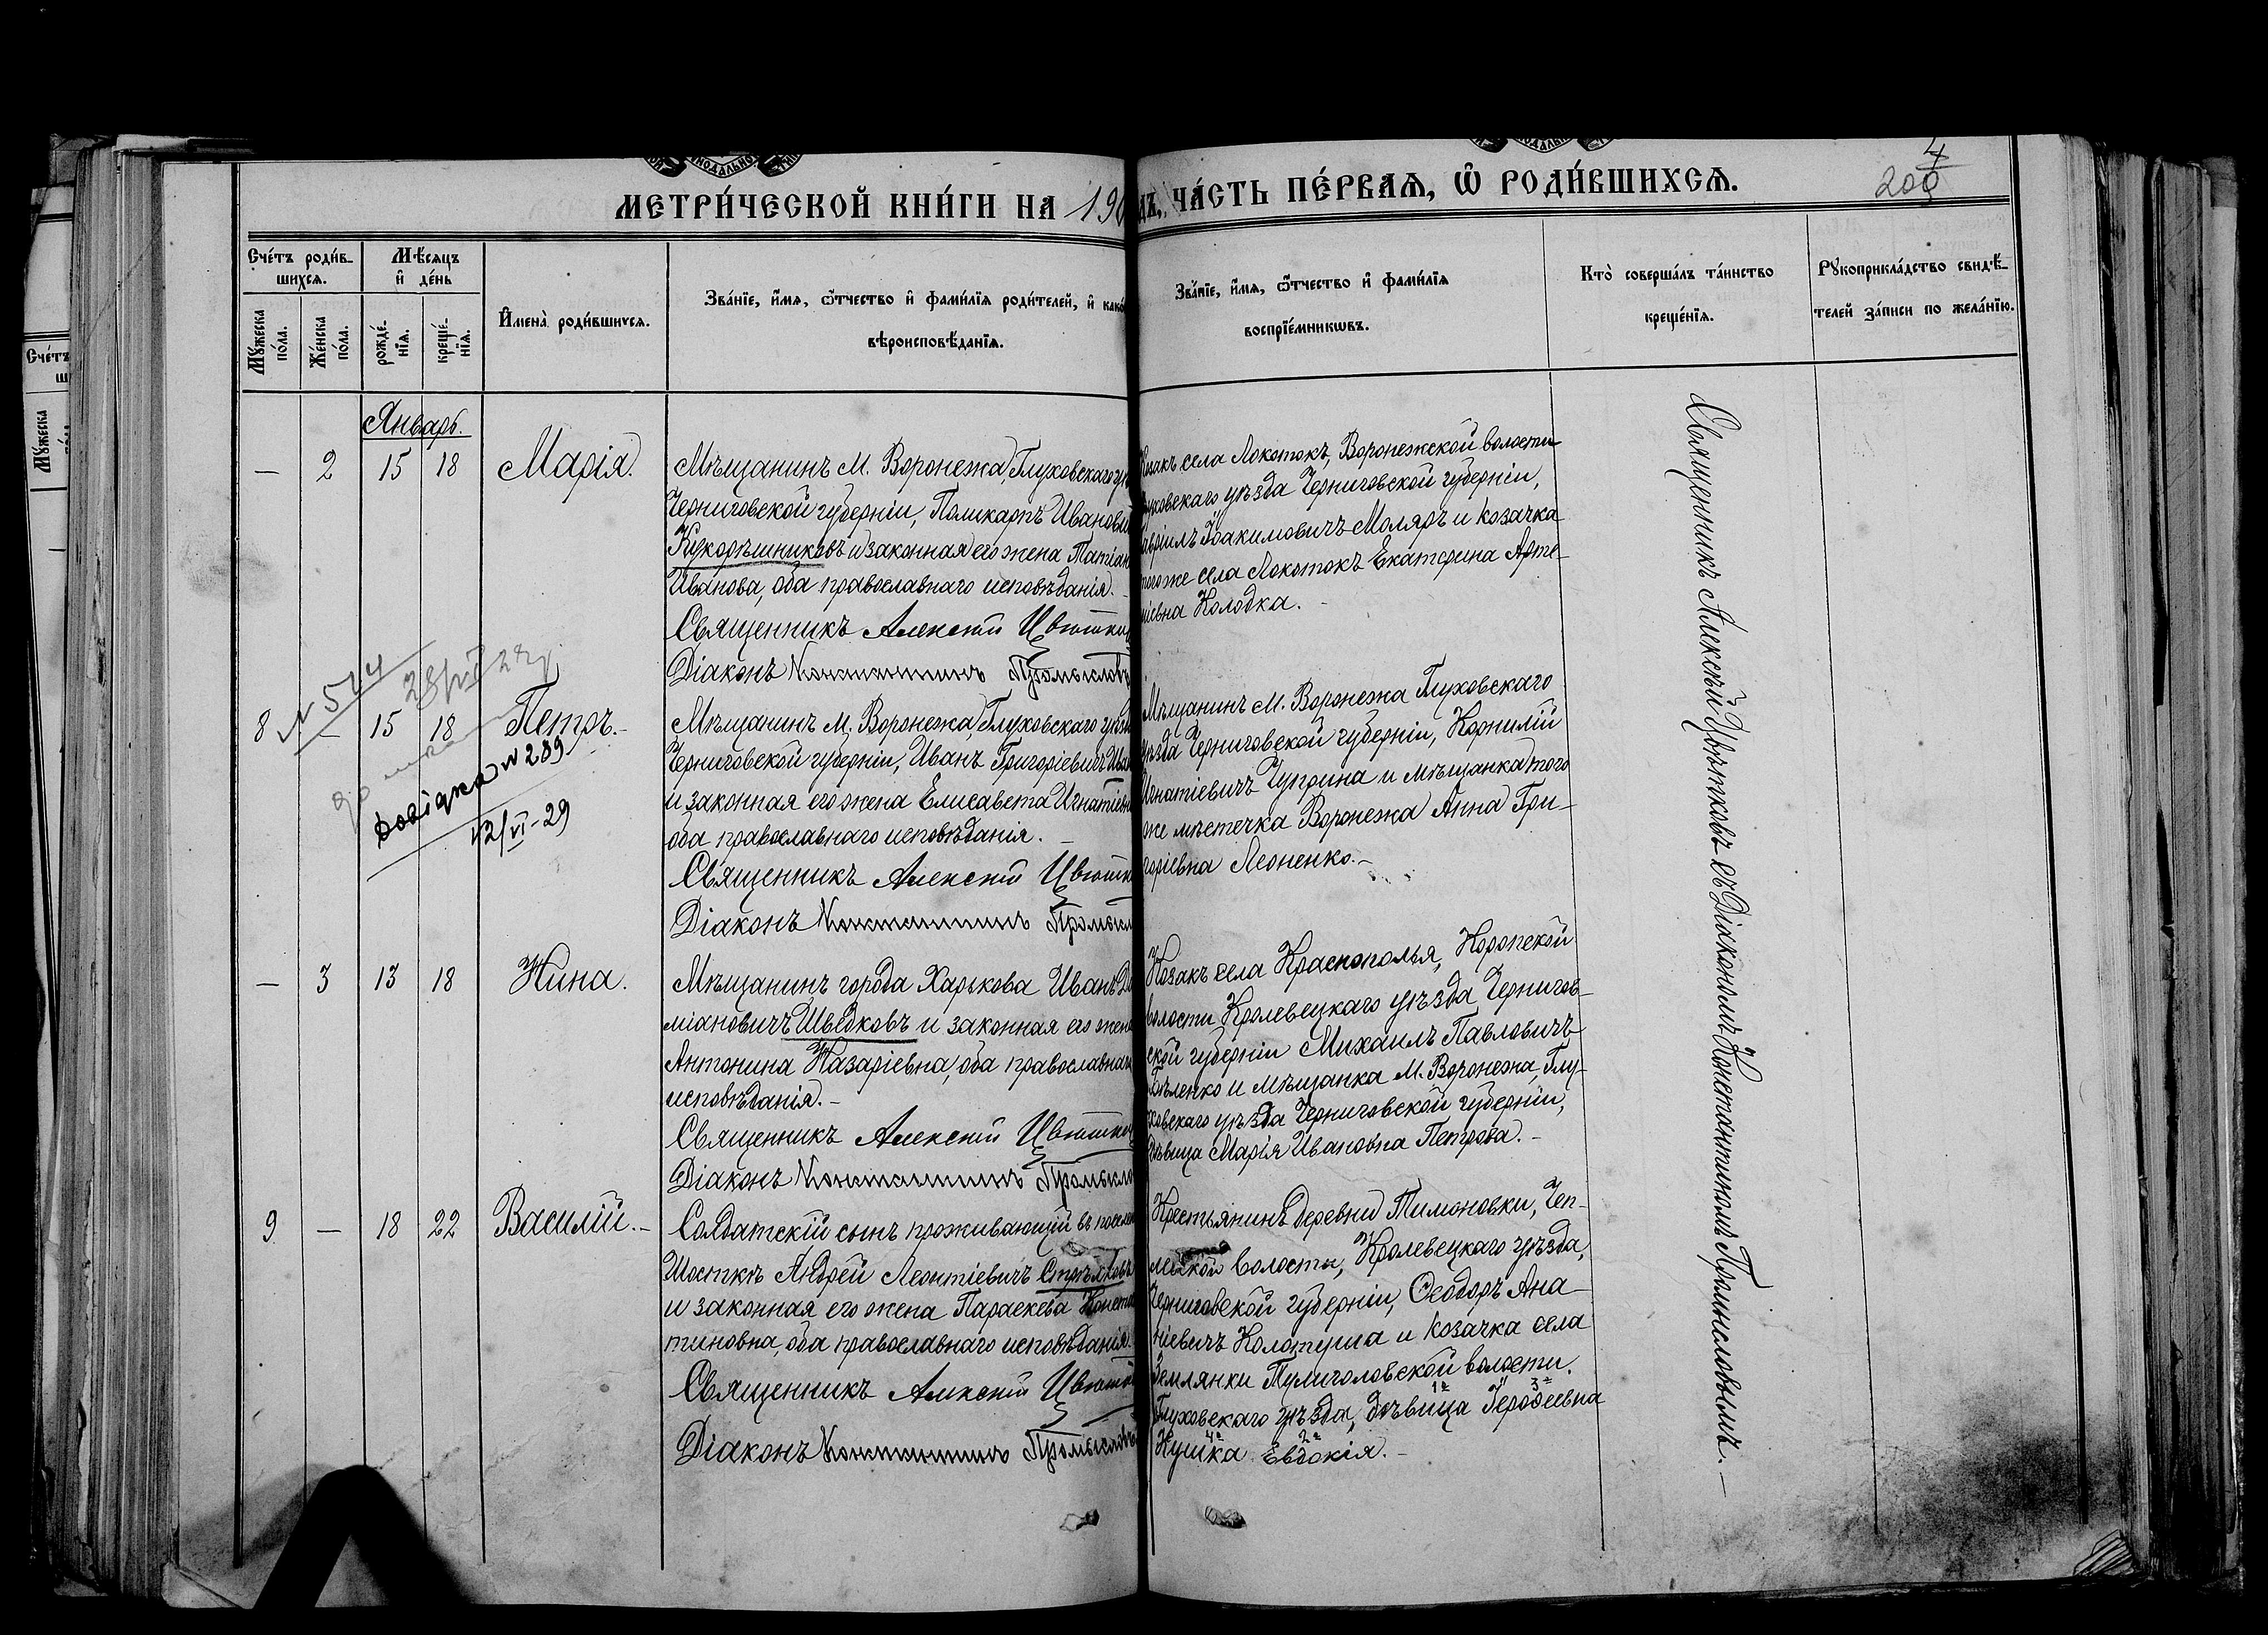 МЕТРИ́ЧЕСКОЙ КНИ́ГИ НА 190
дъ, ЧА́СТЬ ПЕ́РВАѦ, Ѡ҆ РОДИ́ВШИХСѦ.
4
200
Сче́тъ роди́в-
шихсѧ.
Мѣ́сѧцъ
и҆ де́нь
Мꙋ́жеска
по́ла.
Же́нска
по́ла.
рожде́-
нїѧ.
креще́-
нїѧ.
И҆мена̀ роди́вшихсѧ.
Зва́нїе, и҆́мѧ, ѻ҆́тчество и҆ фами́лїѧ роди́телей, и҆ како
вѣроисповѣ́данїѧ.
Зва́нїе, и҆́мѧ, ѻ҆́тчество и҆ фами́лїѧ
воспрїе́мникѡвъ.
Кто̀ соверша́лъ та́инство
креще́нїѧ.
Рꙋкоприкла́дство свидѣ́-
телей за́писи по жела́нїю.
Январь.
— 2 15 18 Марія.
Мѣщанинъ М. Воронежа, Глуховскаго у
Черниговской губерніи, Поликарпъ Иванови
Кукорѣшниковъ и законная его жена Татіан
Иванова, оба православнаго исповѣданія. —
Священникъ Алексѣй Цвѣтко
Діаконъ Константинъ Промысловъ
Козакъ села Локотокъ, Воронежской волости
луховскаго уѣзда Черниговской губерніи,
авріилъ Іоакимовичъ Моляръ и козачка
того же села Локотокъ Екатерина Арте-
міевна Колодка. —
8 — 15 18 Петръ. —
N 514
довідка N 289
12/VI-29
Мѣщанинъ М. Воронежа, Глуховскаго уѣзд
Черниговской губерніи, Иванъ Григоріевичъ Ива
и законная его жена Елисавета Игнатіевн
оба православнаго исповѣданія. —
Священникъ Алексѣй Цвѣтк
Діаконъ Константинъ Промысл
Мѣщанинъ М. Воронежа Глуховскаго
уѣзда Черниговской губерніи, Корнилій
Игнатіевичъ Чуприна и мѣщанка того
же мѣстечка Воронежа Анна Гри-
горіевна Леоненко. —
— 3 13 18 Нина.
Мѣщанинъ города Харькова Иванъ Да
міановичъ Шведковъ и законная его жена
Антонина Назаріевна, оба православнаг
исповѣданія. —
Священникъ Алексѣй Цвѣтко
Діаконъ Константинъ Промысло
Козакъ села Краснополья, Коропской
волости Кролевецкаго уѣзда Чернигов-
ской губерніи Михаилъ Павловичъ
Бѣленко и мѣщанка М. Воронежа, Глу-
ховскаго уѣзда Черниговской губерніи,
дѣвица Марія Ивановна Петрова. —
9 — 18 22 Василій. —
Солдатскій сынъ проживающій въ посел
Шосткѣ Андрей Леонтіевичъ Стрѣлковъ
и законная его жена Параскева Конста
тиновна, оба православнаго исповѣданія.
Священникъ Алексѣй Цвѣтко
Діаконъ Константинъ Промысловъ
Крестьянинъ деревни Тимоновки, Чеп-
лской волости, Кролевецкаго уѣзда,
Черниговской губерніи, Ѳеодоръ Ана-
ніевичъ Колотуша и козачка села
Землянки Тулиголовской волости.
Глуховскаго уѣзда, дѣвица Іеродеевна
Кушка Евдокія. —
Священникъ Алексѣй Цвѣтковъ съ Діакономъ Константиномъ Промысловымъ. —